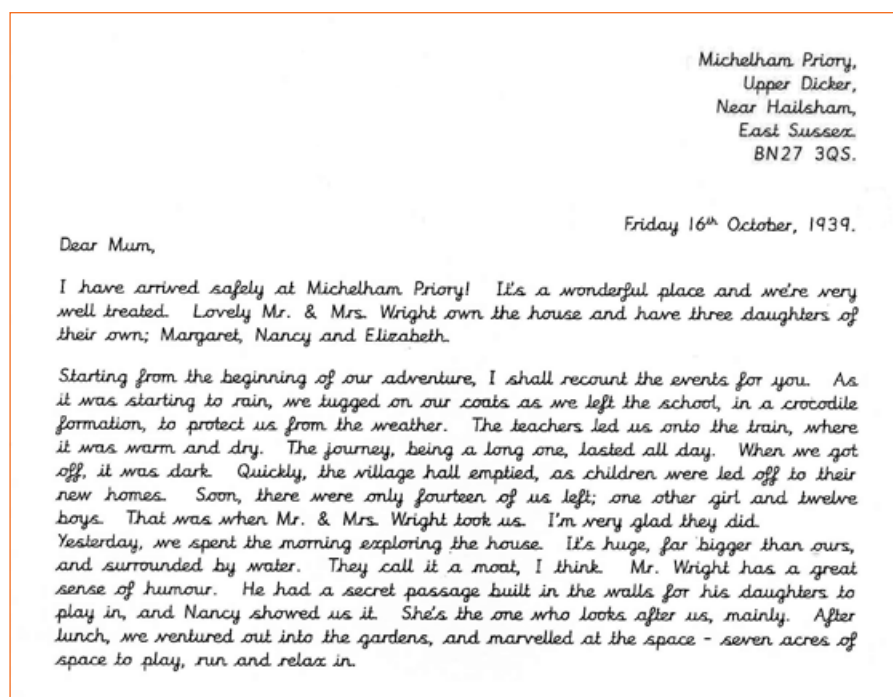 Michelham Priory,
Upper Dicker,
Near Hailsham,
East Sussex.
BN27 3QS.
Friday 16th October, 1939.
Dear Mum,
I have arrived safely at Michelham Priory! It's a wonderful place and we're very
well treated. Lovely Mr. & Mrs. Wright own the house and have three daughters of
their own; Margaret, Nancy and Elizabeth.
Starting from the beginning of our adventure, I shall recount the events for you. As
it was starting to rain, we tugged on our coats as we left the school, in a crocodile
formation, to protect us from the weather. The teachers led us onto the train, where
it was warm and dry. The journey, being a long one, lasted all day. When we got
off, it was dark. Quickly, the village hall emptied, as children were led off to their
new homes. Soon, there were only fourteen of us left; one other girl and twelve
boys. That was when Mr. & Mrs. Wright took us. I'm very glad they did.
Yesterday, we spent the morning exploring the house. It's huge, far bigger than ours,
and surrounded by water. They call it a moat, I think. Mr. Wright has a great
sense of humour. He had a secret passage built in the walls for his daughters to
play in, and Nancy showed us it. She's the one who looks after us, mainly. After
lunch, we ventured out into the gardens, and marvelled at the space - seven acres of
space to play, run and relax in.